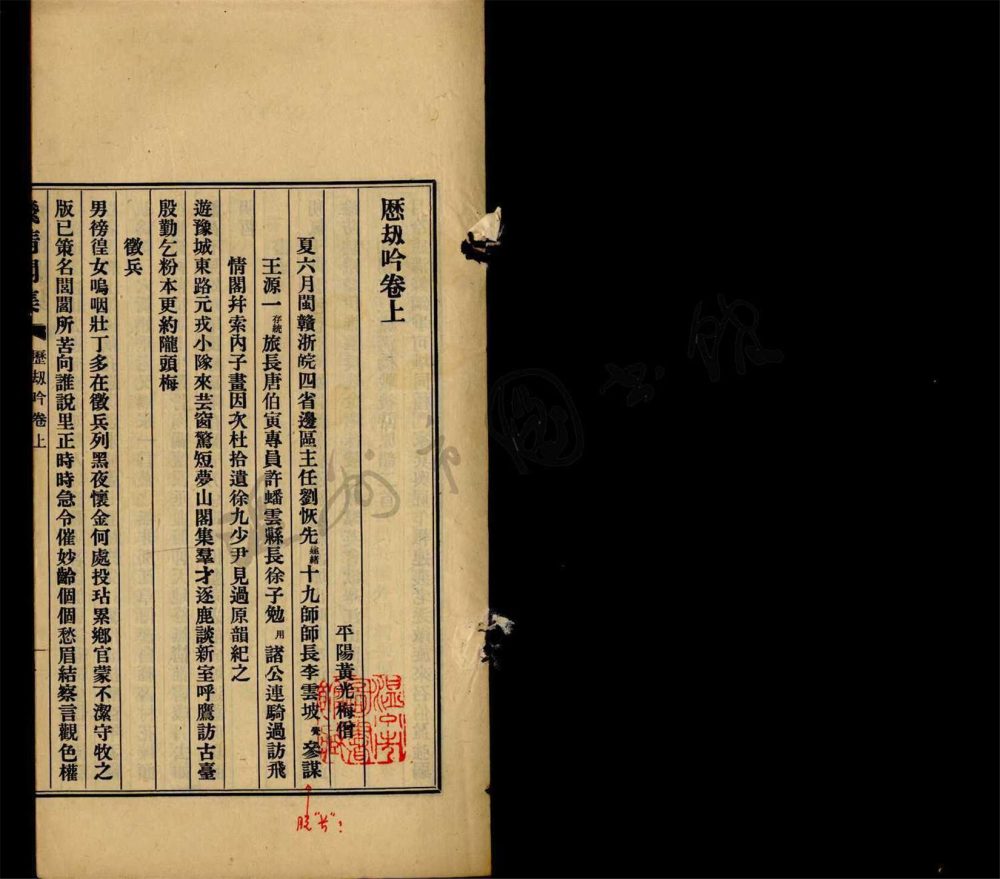 歷刼吟卷上
平陽黃光梅僧
夏六月閩贛浙皖四省邊區主任劉恢先建緒十九師師長李雲坡覺參謀
王源一存統旅長唐伯寅專員許蟠雲縣長徐子勉用諸公連騎過訪飛
情閣幷索內子畫因次杜拾遺徐九少尹見過原韻紀之
遊豫城東路元戎小隊來芸窗驚短夢山閣集羣才逐鹿談新室呼鷹訪古臺
殷勤乞粉本更約隴頭梅
徵兵
男徬徨女嗚咽壯丁多在徵兵列黑夜懷金何處投玷累鄉官蒙不潔守牧之
版已策名閭閻所苦向誰說里正時時急令催妙齡個個愁眉結察言觀色權
飛情閣集
歷刼吟卷上
脫
圖書館